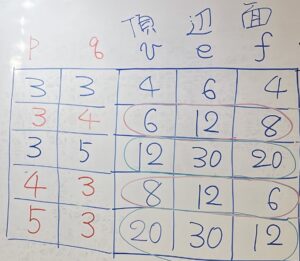 頂 辺 面
p q v e f
3 3 4 6 4
3 4 6 12 8
3 5 12 30 20
4 3 8 12 6
5 3 20 30 12